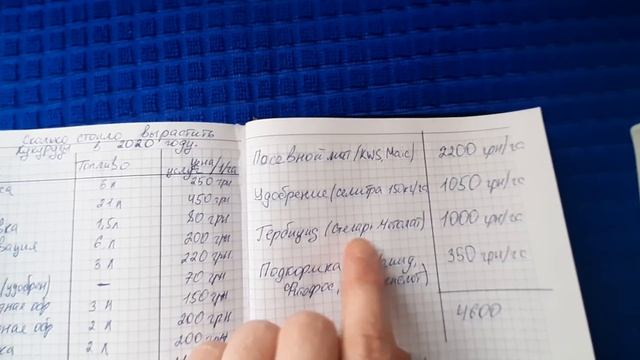 Сколько стоило вырастить
кукурузу в 2020 году.
Топливо
цена/
услуг 1/га
ка 5 л 250 грн
21 л 450 грн
вка 1,5 л 80 грн
вация 6 л 200 грн
3 л 220 грн
/удобрен) — 70 грн
дная обр 3 л 150 грн
ная обр 2 л 200 грн
ка 2 л 200 грн
Посевной мат/KWS, Маис) 2200 грн/га
Удобрение/селитра 150кг/га 1050 грн/га
Гербицид (Стелар+Метолат) 1000 грн/га
Подкормка 350 грн/га
4600